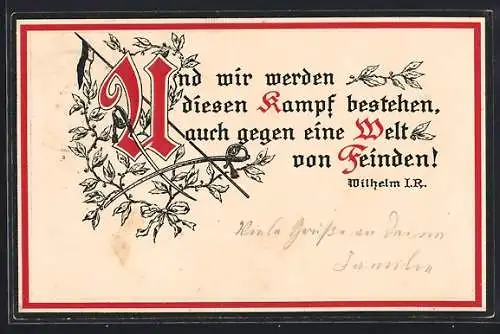 Und wir werden
diesen Kampf bestehen,
auch gegen eine Welt
von Feinden!
Wilhelm I.R.
Viele Grüße an deine
Familie